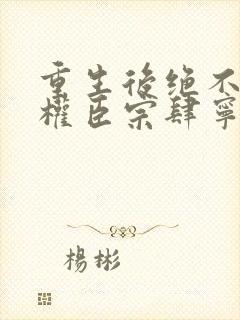 重生後绝不
權臣宗肆寧
楊彬